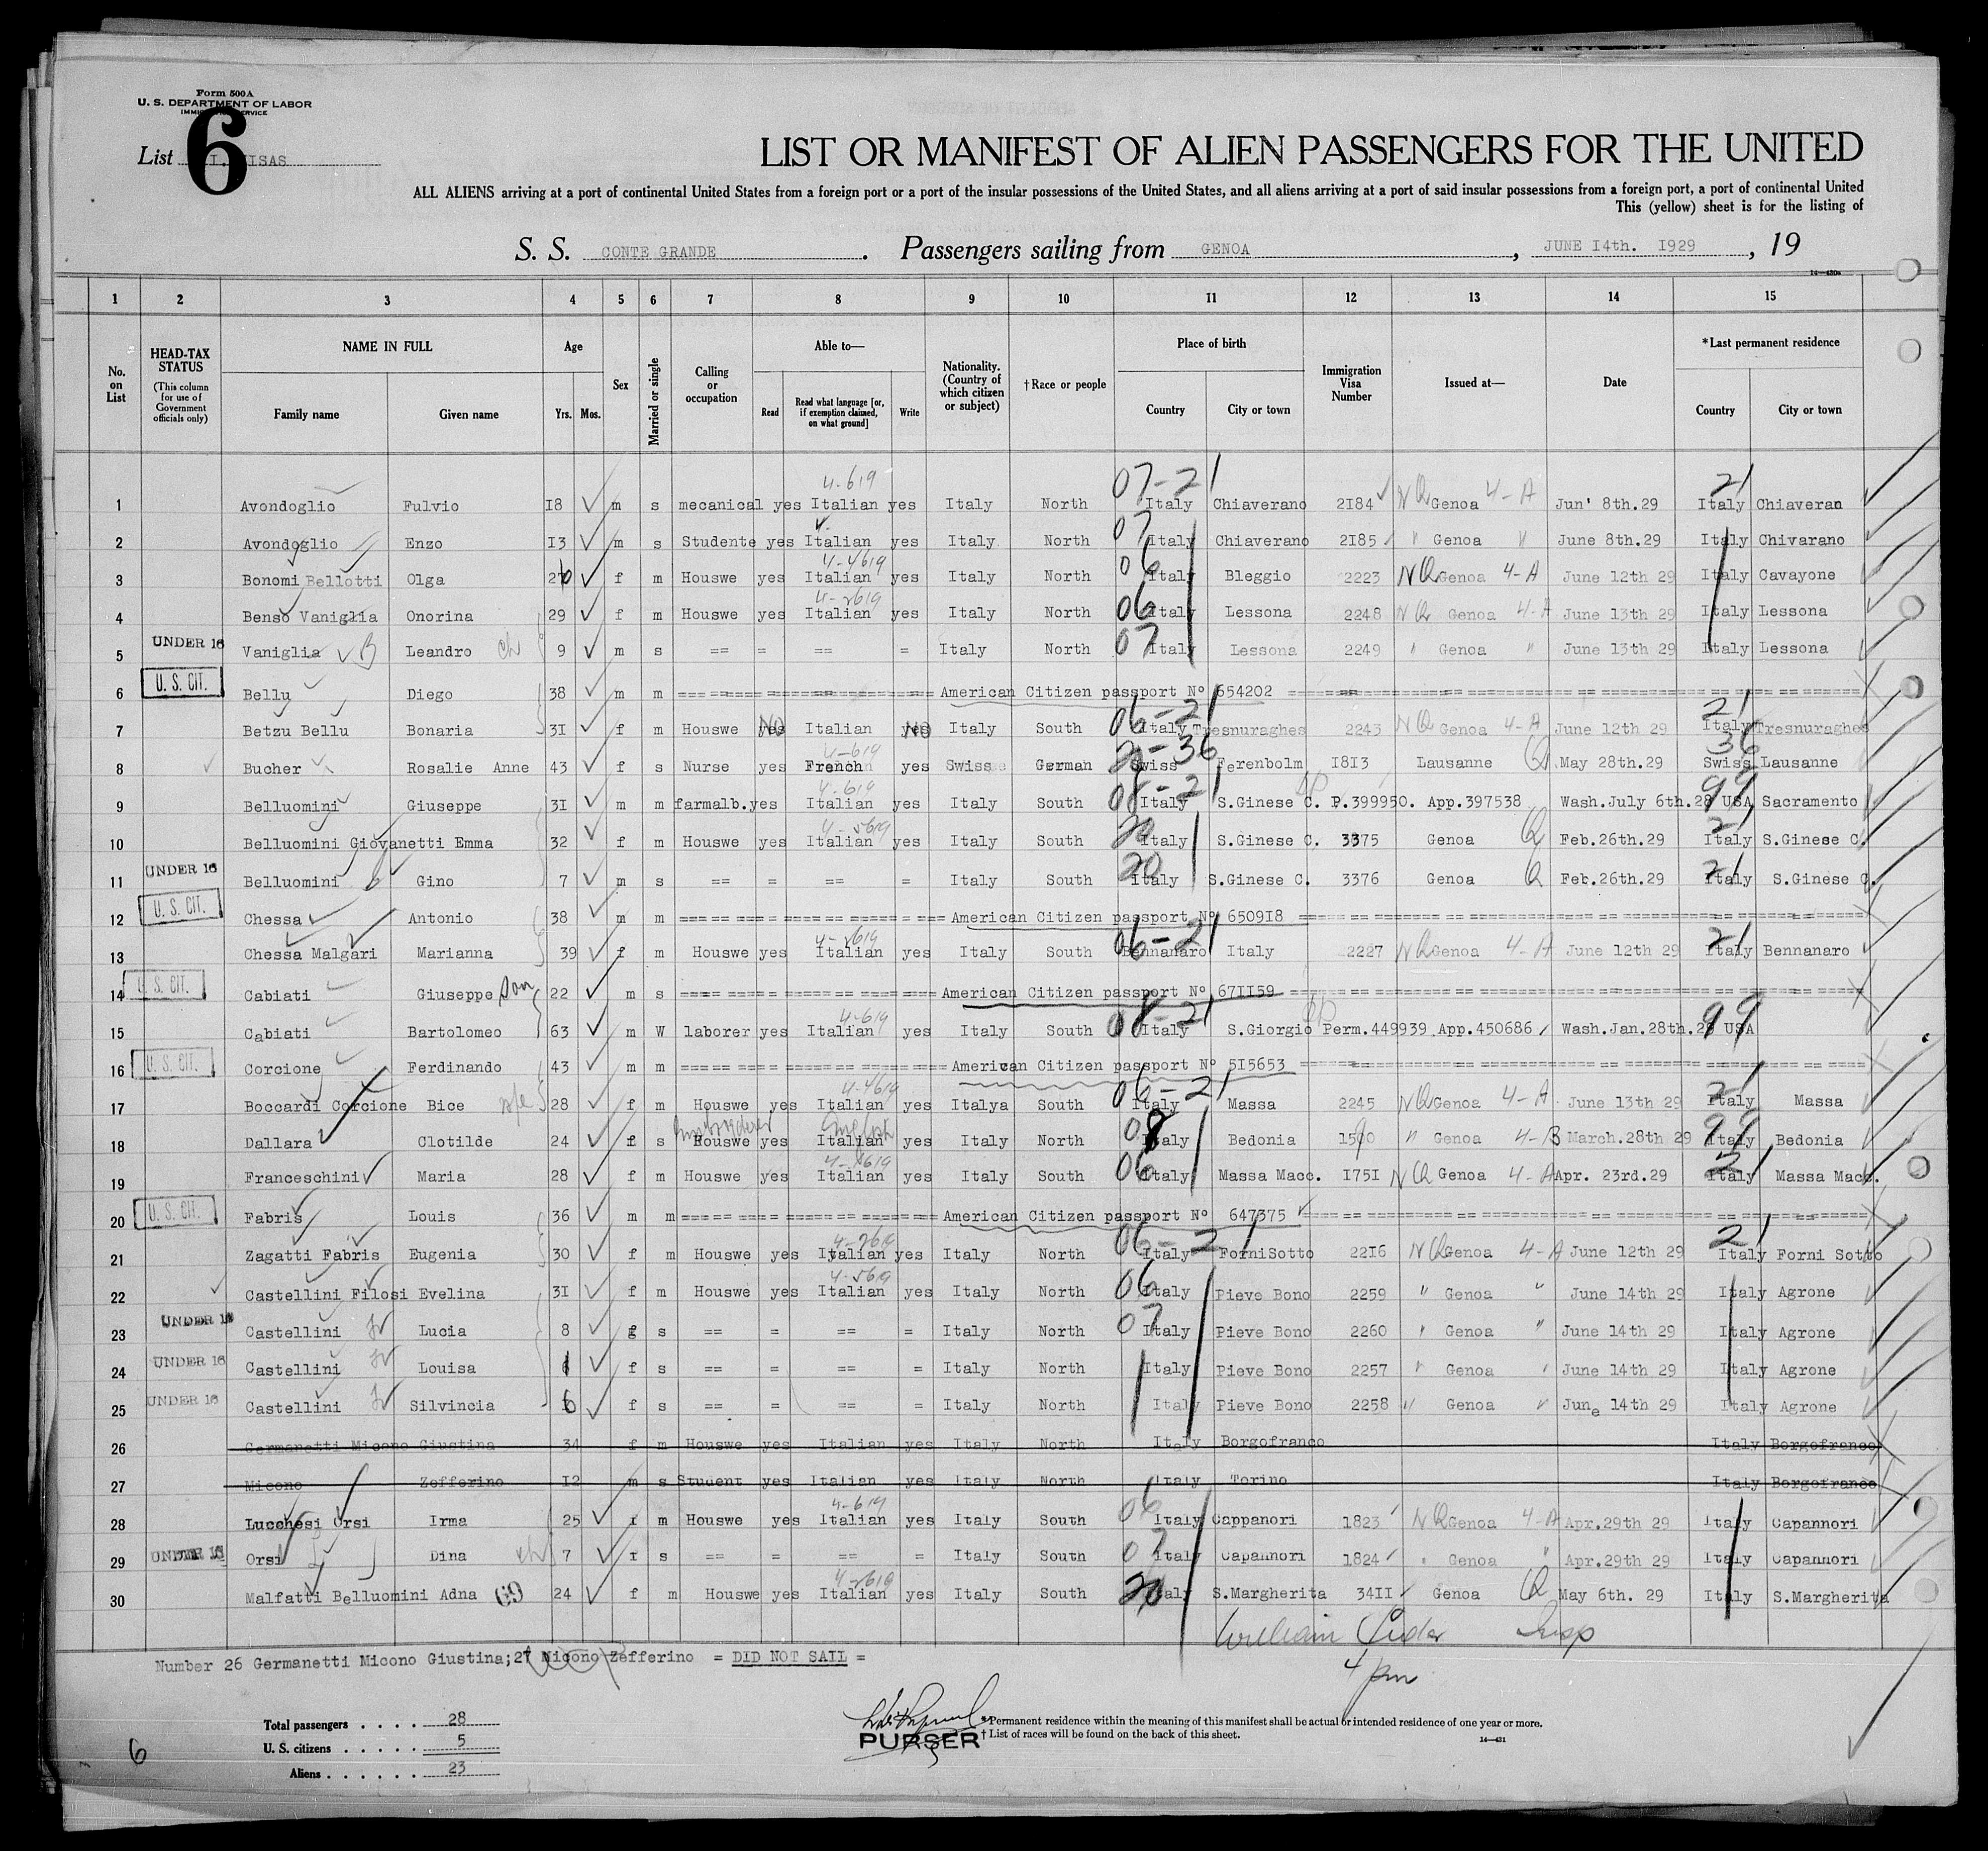 Form 500A
U. S. DEPARTMENT OF LABOR
IMMIGRATION SERVICE
6
List I. VISAS
LIST OR MANIFEST OF ALIEN PASSENGERS FOR THE UNITED
ALL ALIENS arriving at a port of continental United States from a foreign port or a port of the insular possessions of the United States, and all aliens arriving at a port of said insular possessions from a foreign port, a port of continental United
This (yellow) sheet is for the listing of
S. S. CONTE GRANDE. Passengers sailing from GENOA, JUNE I4th. I929, 19
14—430a
1 2 3 4 5 6 7 8 9 10 11 12 13 14 15
No. on List
HEAD-TAX STATUS (This column for use of Government officials only)
NAME IN FULL
Family name Given name
Age
Yrs. Mos.
Sex
Married or single
Calling or occupation
Able to—
Read Read what language [or, if exemption claimed, on what ground] Write
Nationality. (Country of which citizen or subject)
†Race or people
Place of birth
Country City or town
Immigration Visa Number
Issued at—
Date
*Last permanent residence
Country City or town
4-619 07-21 21
1 Avondoglio Fulvio I8 m s mecanical yes Italian yes Italy North Italy Chiaverano 2I84 NQ Genoa 4-A Jun' 8th.29 Italy Chiaveran
07
2 Avondoglio Enzo I3 m s Studente yes Italian yes Italy North Italy Chiaverano 2I85 " Genoa " June 8th.29 Italy Chivarano
4-4619 06
3 Bonomi Bellotti Olga 26 f m Houswe yes Italian yes Italy North Italy Bleggio 2223 NQ Genoa 4-A June I2th 29 Italy Cavayone
4-2619 06
4 Benso Vaniglia Onorina 29 f m Houswe yes Italian yes Italy North Italy Lessona 2248 NQ Genoa 4-A June I3th 29 Italy Lessona
UNDER 16 07
5 Vaniglia Leandro ch 9 m s == = == = Italy North Italy Lessona 2249 " Genoa " June I3th 29 Italy Lessona
U. S. CIT.
6 Bellu Diego 38 m m American Citizen passport No 654202
06-21 21
7 Betzu Bellu Bonaria 3I f m Houswe NO Italian NO Italy South Italy Tresnuraghes 2243 NQ Genoa 4-A June I2th 29 Italy Tresnuraghes
4-619 20-36 36
8 Bucher Rosalie Anne 43 f s Nurse yes French yes Swiss German Swiss Ferenbolm I8I3 Lausanne Q May 28th.29 Swiss Lausanne
4-619 08-21 99
9 Belluomini Giuseppe 3I m m farmalb.yes Italian yes Italy South Italy S.Ginese C. P.399950. App.397538 Wash.July 6th.28 USA Sacramento
4-5619 20 21
10 Belluomini Giovanetti Emma 32 f m Houswe yes Italian yes Italy South Italy S.Ginese C. 3375 Genoa Q Feb.26th.29 Italy S.Ginese C.
UNDER 16 20 21
11 Belluomini Gino 7 m s == = == = Italy South Italy S.Ginese C. 3376 Genoa Q Feb.26th.29 Italy S.Ginese C.
U. S. CIT.
12 Chessa Antonio 38 m m American Citizen passport No 6509I8
4-2619 06-21 21
13 Chessa Malgari Marianna 39 f m Houswe yes Italian yes Italy South Bennanaro Italy 2227 NQ Genoa 4-A June I2th 29 Italy Bennanaro
U. S. CIT.
14 Cabiati Giuseppe son 22 m s American Citizen passport No 67II59
4-619 08-21 99
15 Cabiati Bartolomeo 63 m W laborer yes Italian yes Italy South Italy S.Giorgio Perm.449939 App.450686 Wash.Jan.28th.28 USA
U. S. CIT.
16 Corcione Ferdinando 43 m m American Citizen passport No 5I5653
4-4619 06-21 21
17 Boccardi Corcione Bice 28 f m Houswe yes Italian yes Italya South Italy Massa 2245 NQ Genoa 4-A June I3th 29 Italy Massa
English 08 99
18 Dallara Clotilde 24 f s Houswe yes Italian yes Italy North Italy Bedonia I590 " Genoa 4-B March.28th 29 Italy Bedonia
06 21
19 Franceschini Maria 28 f m Houswe yes Italian yes Italy South Italy Massa Macc. I75I NQ Genoa 4-A Apr. 23rd.29 Italy Massa Macc.
U. S. CIT.
20 Fabris Louis 36 m m American Citizen passport No 647375
4-2619 06-21 21
21 Zagatti Fabris Eugenia 30 f m Houswe yes Italian yes Italy North Italy ForniSotto 22I6 NQ Genoa 4-A June I2th 29 Italy Forni Sotto
4-5619 06
22 Castellini Filosi Evelina 3I f m Houswe yes Italian yes Italy North Italy Pieve Bono 2259 " Genoa " June I4th 29 Italy Agrone
UNDER 16 07
23 Castellini Lucia 8 f s == = == = Italy North Italy Pieve Bono 2260 " Genoa " June I4th 29 Italy Agrone
UNDER 16
24 Castellini Louisa 1 f s == = == = Italy North Italy Pieve Bono 2257 " Genoa " June I4th 29 Italy Agrone
UNDER 16
25 Castellini Silvincia 6 f s == = == = Italy North Italy Pieve Bono 2258 " Genoa " June I4th 29 Italy Agrone
26 Germanetti Micono Giustina 34 f m Houswe yes Italian yes Italy North Italy Borgofranco Italy Borgofranco
27 Micono Zefferino I2 m s Student yes Italian yes Italy North Italy Torino Italy Borgofranco
4-619 06
28 Lucchesi Orsi Irma 25 f m Houswe yes Italian yes Italy South Italy Cappanori I823 NQ Genoa 4-A Apr.29th 29 Italy Capannori
UNDER 16 07
29 Orsi Dina ch 7 f s == = == = Italy South Italy Capannori I824 " Genoa " Apr.29th 29 Italy Capannori
4-2619 20
30 Malfatti Belluomini Adna 69 24 f m Houswe yes Italian yes Italy South Italy S.Margherita 34II Genoa Q May 6th. 29 Italy S.Margherita
William Insp
4 pm
Number 26 Germanetti Micono Giustina;27 Micono Zefferino = DID NOT SAIL =
Total passengers . . . . 28
U. S. citizens . . . . . 5
Aliens . . . . . . 23
6
PURSER
*Permanent residence within the meaning of this manifest shall be actual or intended residence of one year or more.
†List of races will be found on the back of this sheet.
14—431